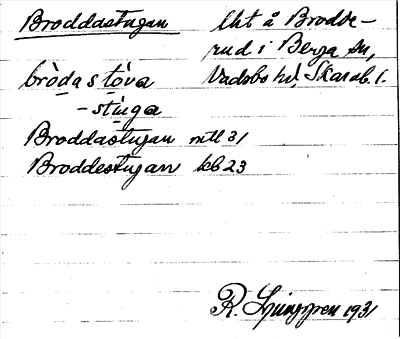 Broddastugan
Lht å Brodde-
rud i Berga sn,
Vadsbo hd, Skarab. l.
bròdastòva
-stùga
Broddastugan mtl 31
Broddestugan kb 23
R. Ljunggren 1931